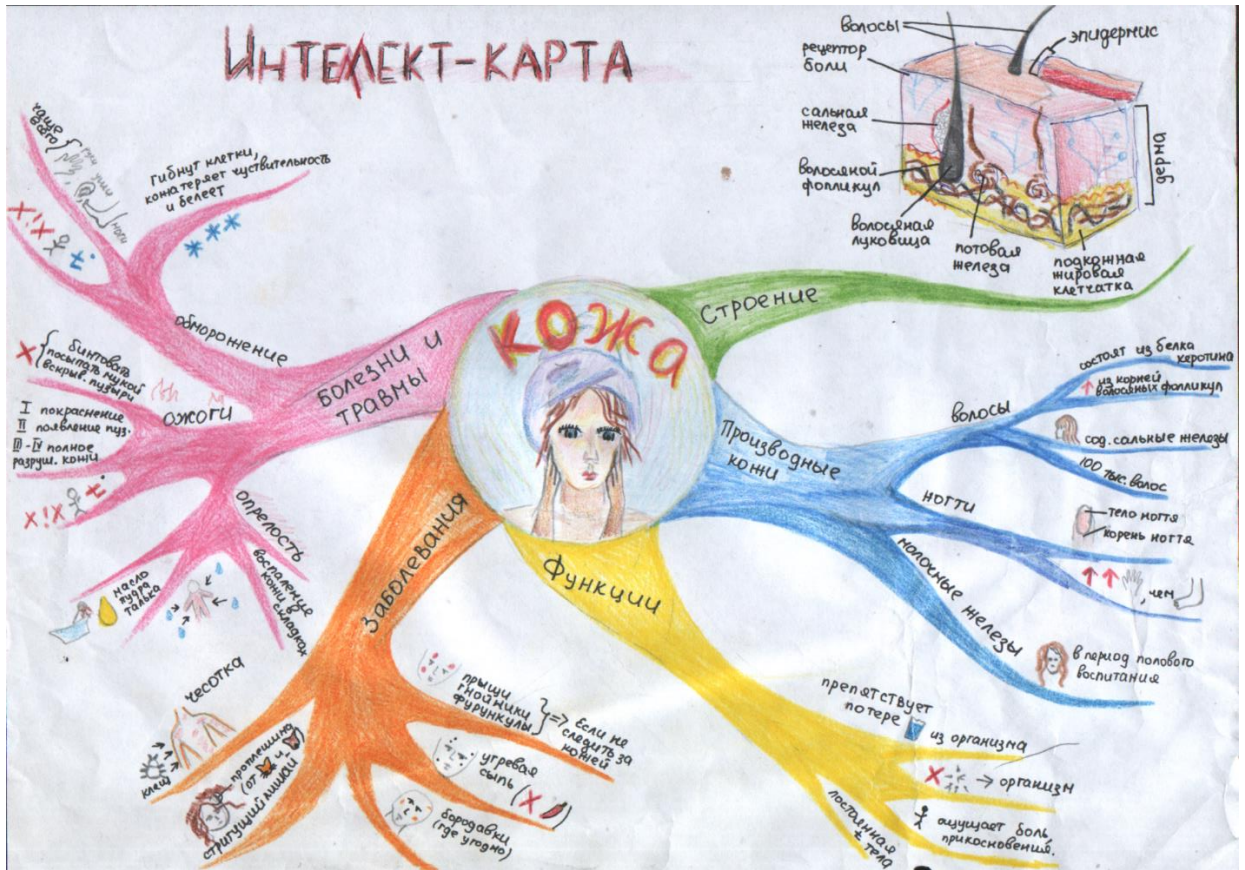 ИНТЕЛЛЕКТ-КАРТА
волосы
рецептор
боли
сальная
железа
волосяной
фолликул
волосяная
луковица
потовая
железа
подкожная
жировая
клетчатка
эпидермис
дерма
КОЖА
Строение
Производные
кожи
волосы
состоят из белка
керотина
из корней
волосяных фолликул
сод. сальные железы
100 тыс. волос
ногти
тело ногтя
корень ногтя
, чем
молочные железы
в период полового
воспитания
Функции
препятствует
потере
из организма
организм
ощущает боль
прикосновения.
постоянная
t тела
Заболевания
прыщи
гнойники
фурункулы
=> Если не
следить за
кожей
угревая
сыпь
бородавки
(где угодно)
стригущий лишай
проплешина
(от и )
чесотка
клещ
Болезни и
травмы
обморожение
чаще
всего
уши
ноги
гибнут клетки,
кожа теряет чуствительность
и белеет
X!X
t
ожоги
X
бинтовать
посыпать мукой
вскрыв. пузыри
I покраснение
II появление пуз.
III-IV полное
разруш. кожи
X!X
t
опрелость
воспаление
кожи в
складках
масло
пудра
талька